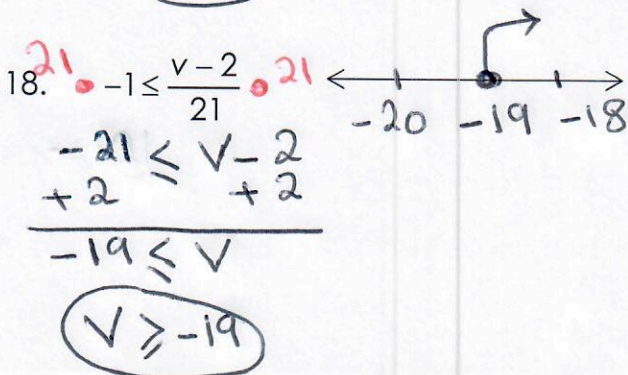 18. 21 • -1 ≤ (v - 2)/21 • 21
-20 -19 -18
-21 ≤ v - 2
+2 +2
-19 ≤ v
v ≥ -19